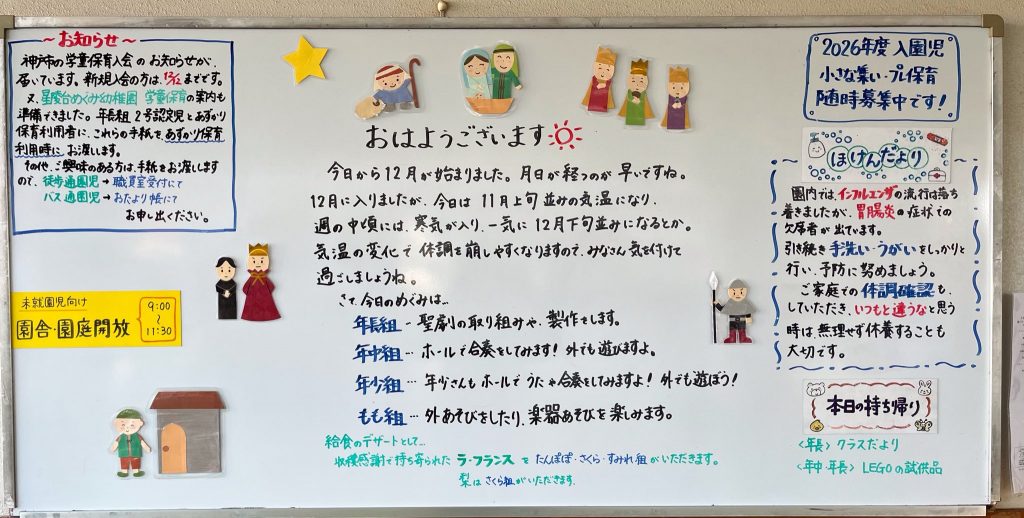 ～お知らせ～
神戸市の学童保育入会のお知らせが、
届いています。新規入会の方は、12/12までです。
又、星陵台めぐみ幼稚園 学童保育の案内も
準備できました。年長組2号認定児とあずかり
保育利用者に、これらの手紙を、あずかり保育
利用時に、お渡します。
その他、ご興味のある方は、手紙をお渡しします
ので、徒歩通園児→職員室受付にて
バス通園児→おたより帳にて
お申し出ください。
未就園児向け
園舎・園庭開放
9:00
～
11:30
おはようございます
今日から12月が始まりました。月日が経つのが早いですね。
12月に入りましたが、今日は11月上旬並みの気温になり、
週の中頃には、寒気が入り、一気に12月下旬並みになるとか。
気温の変化で体調を崩しやすくなりますので、みなさん気を付けて
過ごしましょうね。
さて、今日のめぐみは…
年長組…聖劇の取り組みや、製作をします。
年中組…ホールで合奏をしてみます！外でも遊びますよ。
年少組…年少さんもホールでうたや合奏をしてみますよ！外でも遊ぼう！
もも組…外あそびをしたり、楽器あそびを楽しみます。
給食のデザートとして…
収穫感謝で持ち寄られたラ・フランスをたんぽぽ・さくら・すみれ組がいただきます。
梨はさくら組がいただきます。
2026年度 入園児
小さな集い・プレ保育
随時募集中です！
ほけんだより
園内では、インフルエンザの流行は落ち
着きましたが、胃腸炎の症状での
欠席者が出ています。
引き続き手洗い・うがいをしっかりと
行い、予防に努めましょう。
ご家庭での体調確認も、
していただき、いつもと違うなと思う
時は、無理せず休養することも
大切です。
本日の持ち帰り
〈年長〉クラスだより
〈年中・年長〉LEGOの試供品